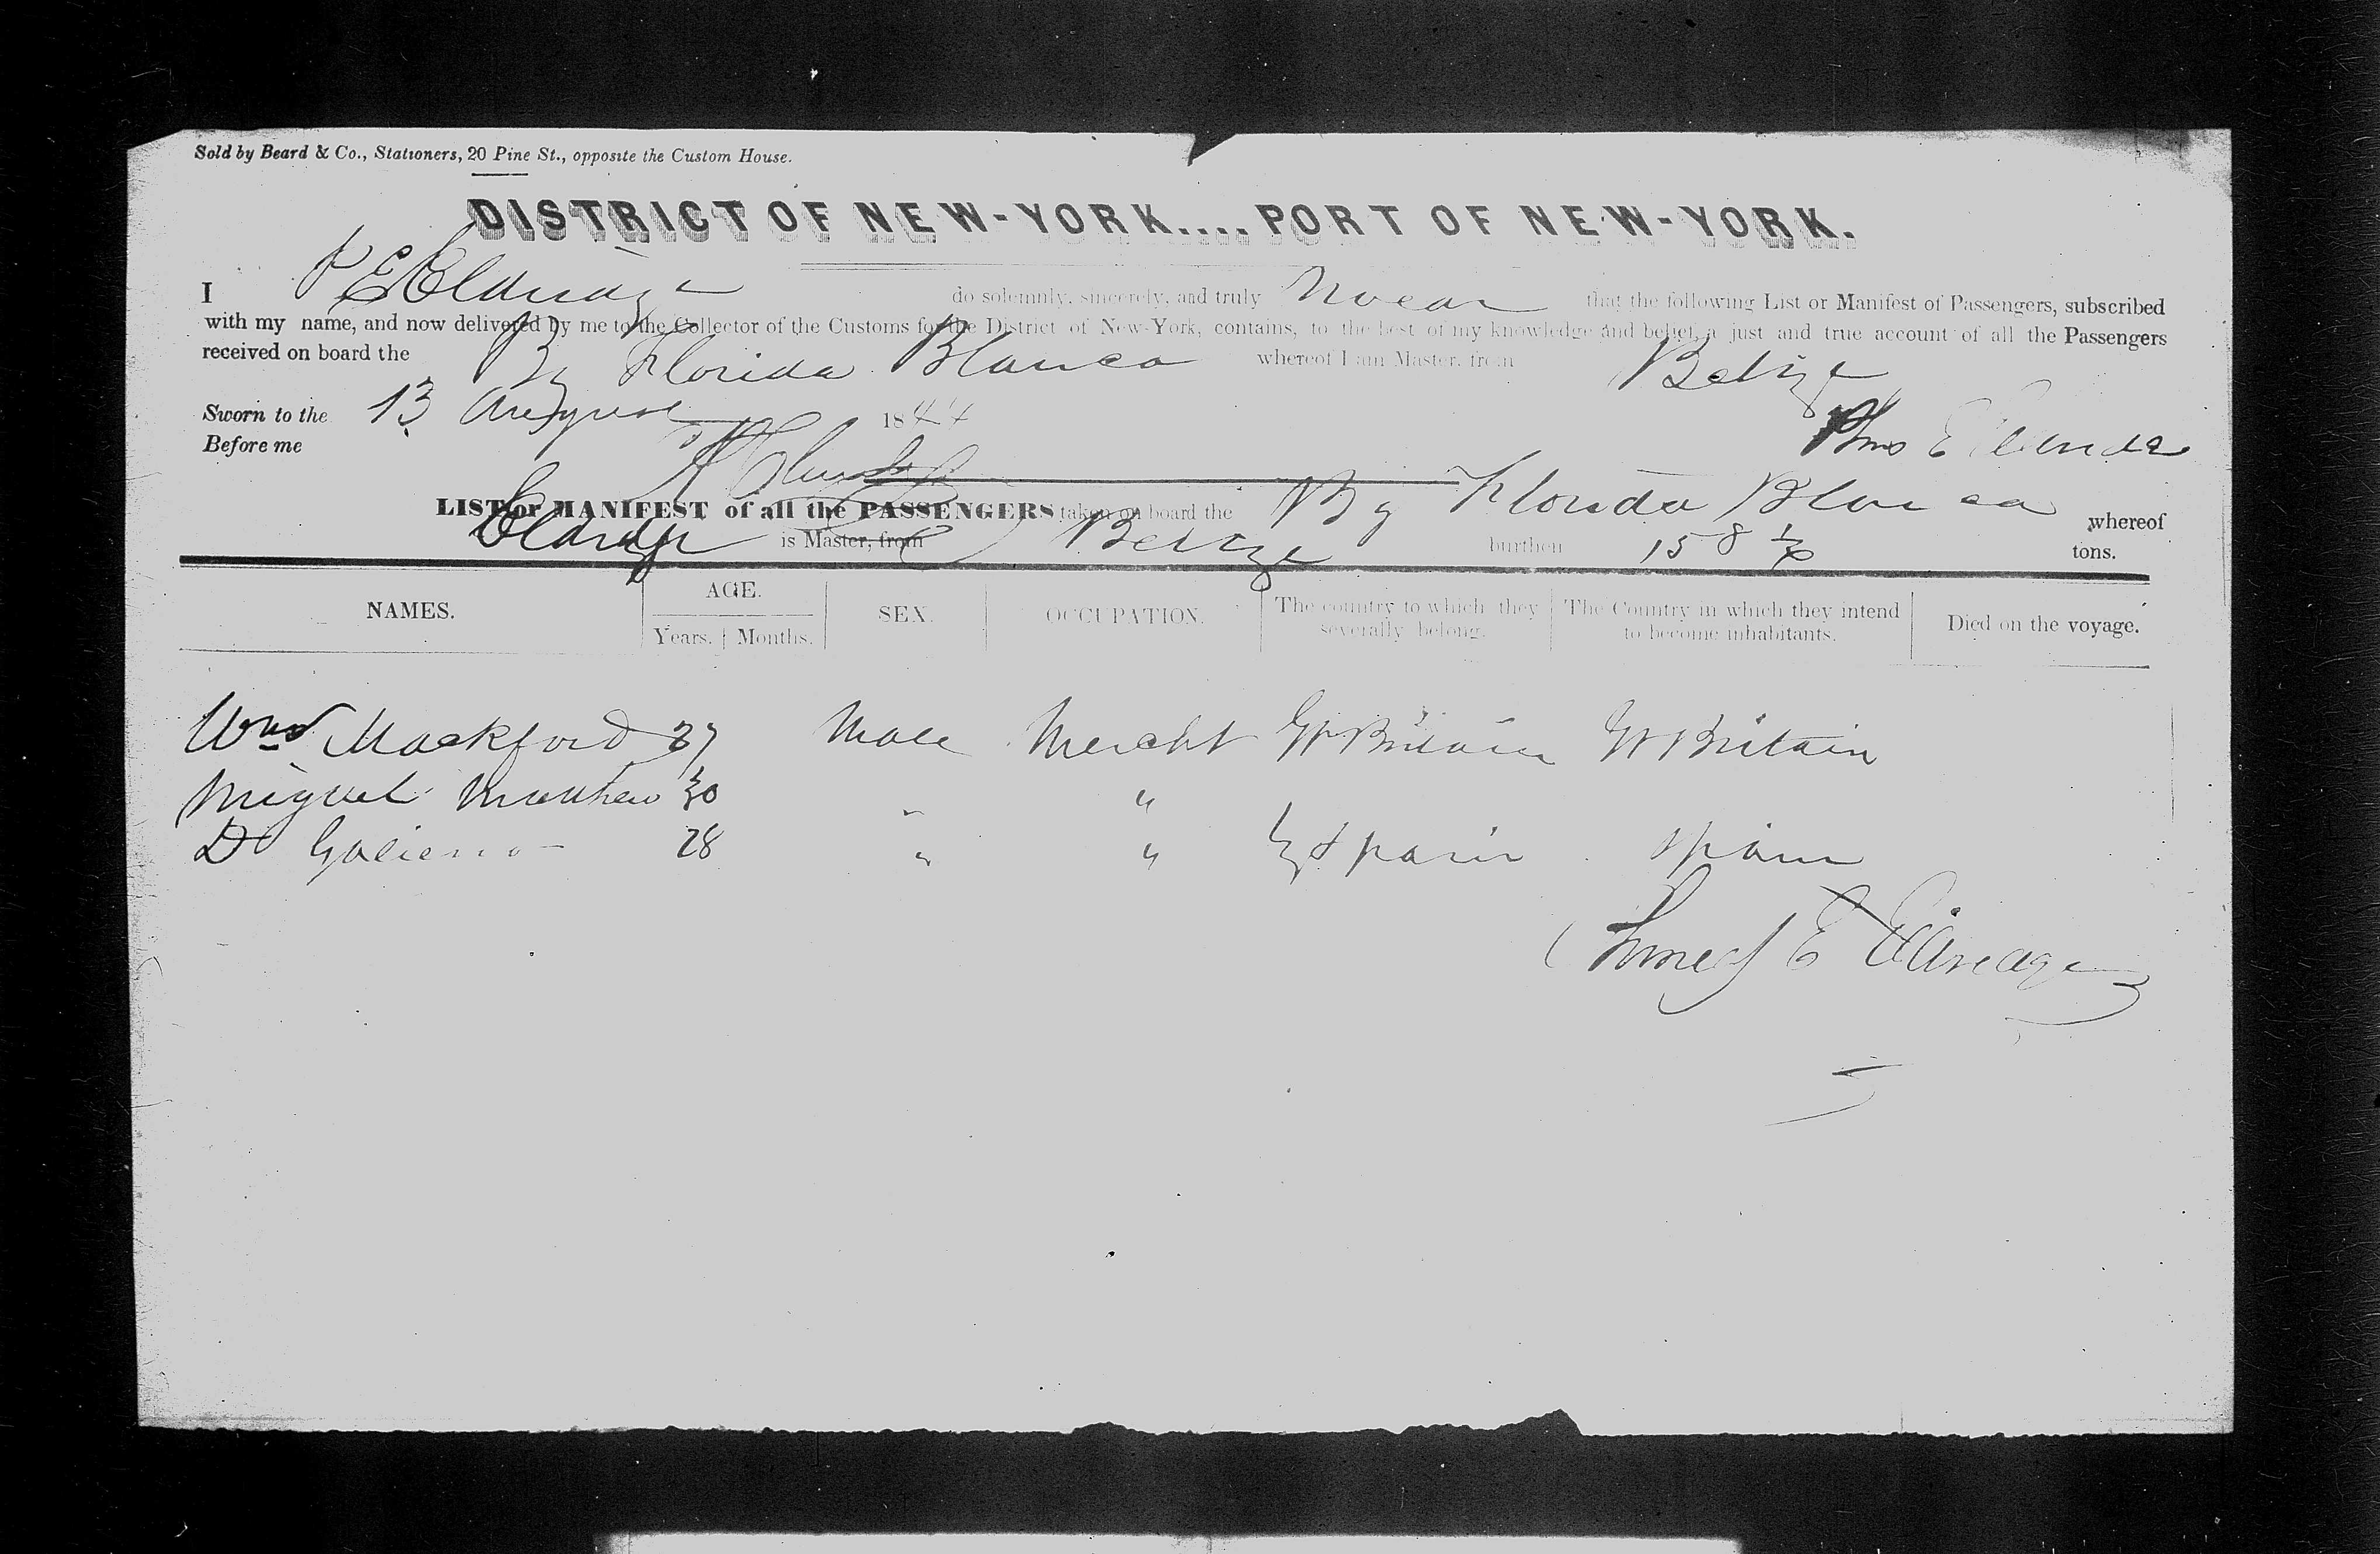 Sold by Beard & Co., Stationers, 20 Pine St., opposite the Custom House.
DISTRICT OF NEW-YORK.... PORT OF NEW-YORK.
I Eldridge do solemnly, sincerely, and truly swear that the following List or Manifest of Passengers, subscribed
with my name, and now delivered by me to the Collector of the Customs for the District of New-York, contains, to the best of my knowledge and belief, a just and true account of all the Passengers
received on board the Bg Florida Blanca whereof I am Master, from Belize
Sworn to the 13 August 1844
Before me
LIST or MANIFEST of all the PASSENGERS taken on board the Bg Florida Blanca whereof
is Master, from Belize burthen 158 tons.
NAMES. AGE. SEX. OCCUPATION. The country to which they severally belong. The Country in which they intend to become inhabitants. Died on the voyage.
Years. Months.
Wm Mackford 37 Male Mercht Gt Britain Gt Britain
Miguel 30 " "
D Galieno 28 " " Spain Spain
E Eldredge